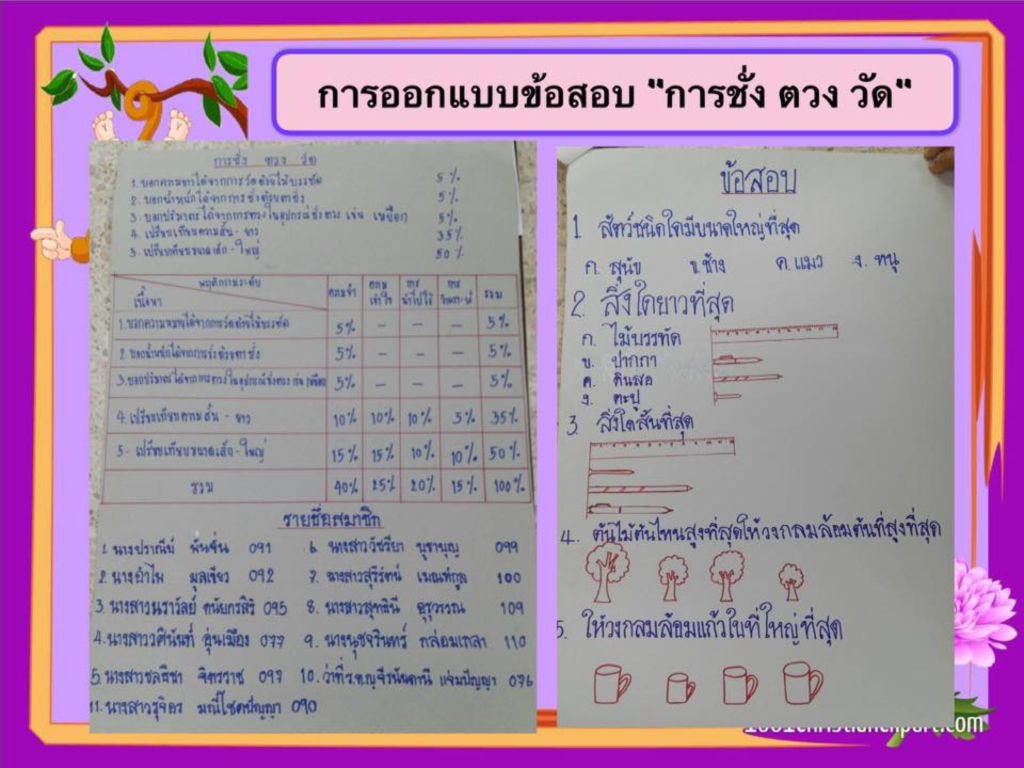 การออกแบบข้อสอบ "การชั่ง ตวง วัด"
การชั่ง ตวง วัด
1. บอกความยาวได้จากการวัดด้วยไม้บรรทัด 5%
2. บอกน้ำหนักได้จากการชั่งด้วยตาชั่ง 5%
3. บอกปริมาตรได้จากการตวงในอุปกรณ์ชั่งตวง เช่น เหยือก 5%
4. เปรียบเทียบความสั้น - ยาว 35%
5. เปรียบเทียบขนาดเล็ก - ใหญ่ 50%
พฤติกรรม
เนื้อหา
ความจำ ความเข้าใจ การนำไปใช้ การวิเคราะห์ รวม
1. บอกความยาวได้จากการวัดด้วยไม้บรรทัด 5% - - - 5%
2. บอกน้ำหนักได้จากการชั่งด้วยตาชั่ง 5% - - - 5%
3. บอกปริมาตรได้จากการตวงในอุปกรณ์ชั่งตวง เช่น เหยือก 5% - - - 5%
4. เปรียบเทียบความสั้น - ยาว 10% 10% 10% 5% 35%
5. เปรียบเทียบขนาดเล็ก - ใหญ่ 15% 15% 10% 10% 50%
รวม 40% 25% 20% 15% 100%
รายชื่อสมาชิก
1. นางปราณีย์ 091 6. นางสาววัชรียา บุชาบุญ 099
2. นางอำไพ มูลเขียว 092 7. นางสาวสุริรัตน์ 100
3. นางสาวนราวัลย์ ดนัยกรสิริ 095 8. นางสาวสุทธินี 109
4. นางสาววศินันท์ อุ่นเมือง 077 9. นางนุชจรินทร์ กล่อมเกลา 110
5. นางสาวชลธิชา จิตรราช 097 10. ว่าที่ร.ต.ญ แจ่มปัญญา 076
11. นางสาวรุจิอร มณีโชตปัญญา 090
ข้อสอบ
1 สัตว์ชนิดใดมีขนาดใหญ่ที่สุด
ก. สุนัข ข. ช้าง ค. แมว ง. หนู
2. สิ่งใดยาวที่สุด
ก. ไม้บรรทัด
ข. ปากกา
ค. ดินสอ
ง. ตะปู
3. สิ่งใดสั้นที่สุด
4. ต้นไม้ต้นไหนสูงที่สุดให้วงกลมล้อมต้นที่สูงที่สุด
5. ให้วงกลมล้อมแก้วใบที่ใหญ่ที่สุด
1001christianclipart.com